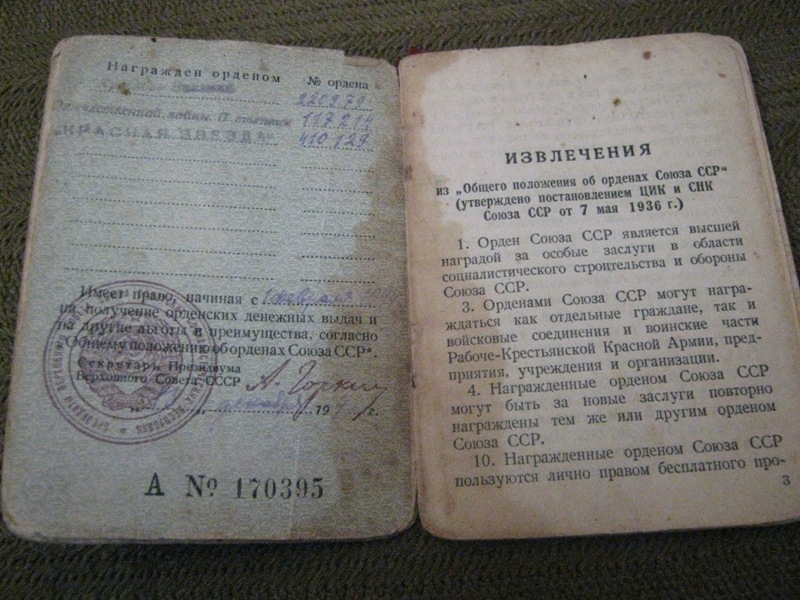 Награжден орденом № ордена
220979
Отечественной войны II степени 117214
„КРАСНАЯ ЗВЕЗДА“ 410129
Имеет право, начиная с 1 февраля
на получение орденских денежных выдач и
на другие льготы и преимущества, согласно
„Общему положению об орденах Союза ССР“.
Секретарь Президиума
Верховного Совета СССР А. Горкин
декабря 19 г.
А № 170395
ИЗВЛЕЧЕНИЯ
из „Общего положения об орденах Союза ССР“
(утверждено постановлением ЦИК и СНК
Союза ССР от 7 мая 1936 г.)
1. Орден Союза ССР является высшей
наградой за особые заслуги в области
социалистического строительства и обороны
Союза ССР.
3. Орденами Союза ССР могут награ-
ждаться как отдельные граждане, так и
войсковые соединения и воинские части
Рабоче-Крестьянской Красной Армии, пред-
приятия, учреждения и организации.
4. Награжденные орденом Союза ССР
могут быть за новые заслуги повторно
награждены тем же или другим орденом
Союза ССР.
10. Награжденные орденом Союза ССР
пользуются лично правом бесплатного про-
3